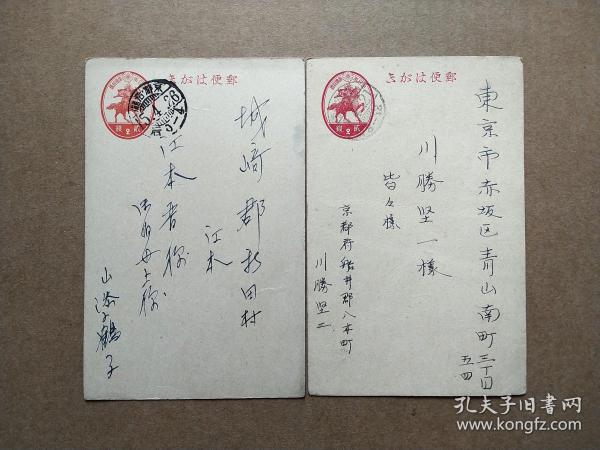 郵便はがき
城崎郡新田村
江本
江本者様
山添鶴子
15.4.26
郵便はがき
東京市赤坂区青山南町三丁目
五四
川勝堅一様
皆々様
京都府船井郡八木町
川勝堅二
孔夫子旧书网
www.kongfz.com